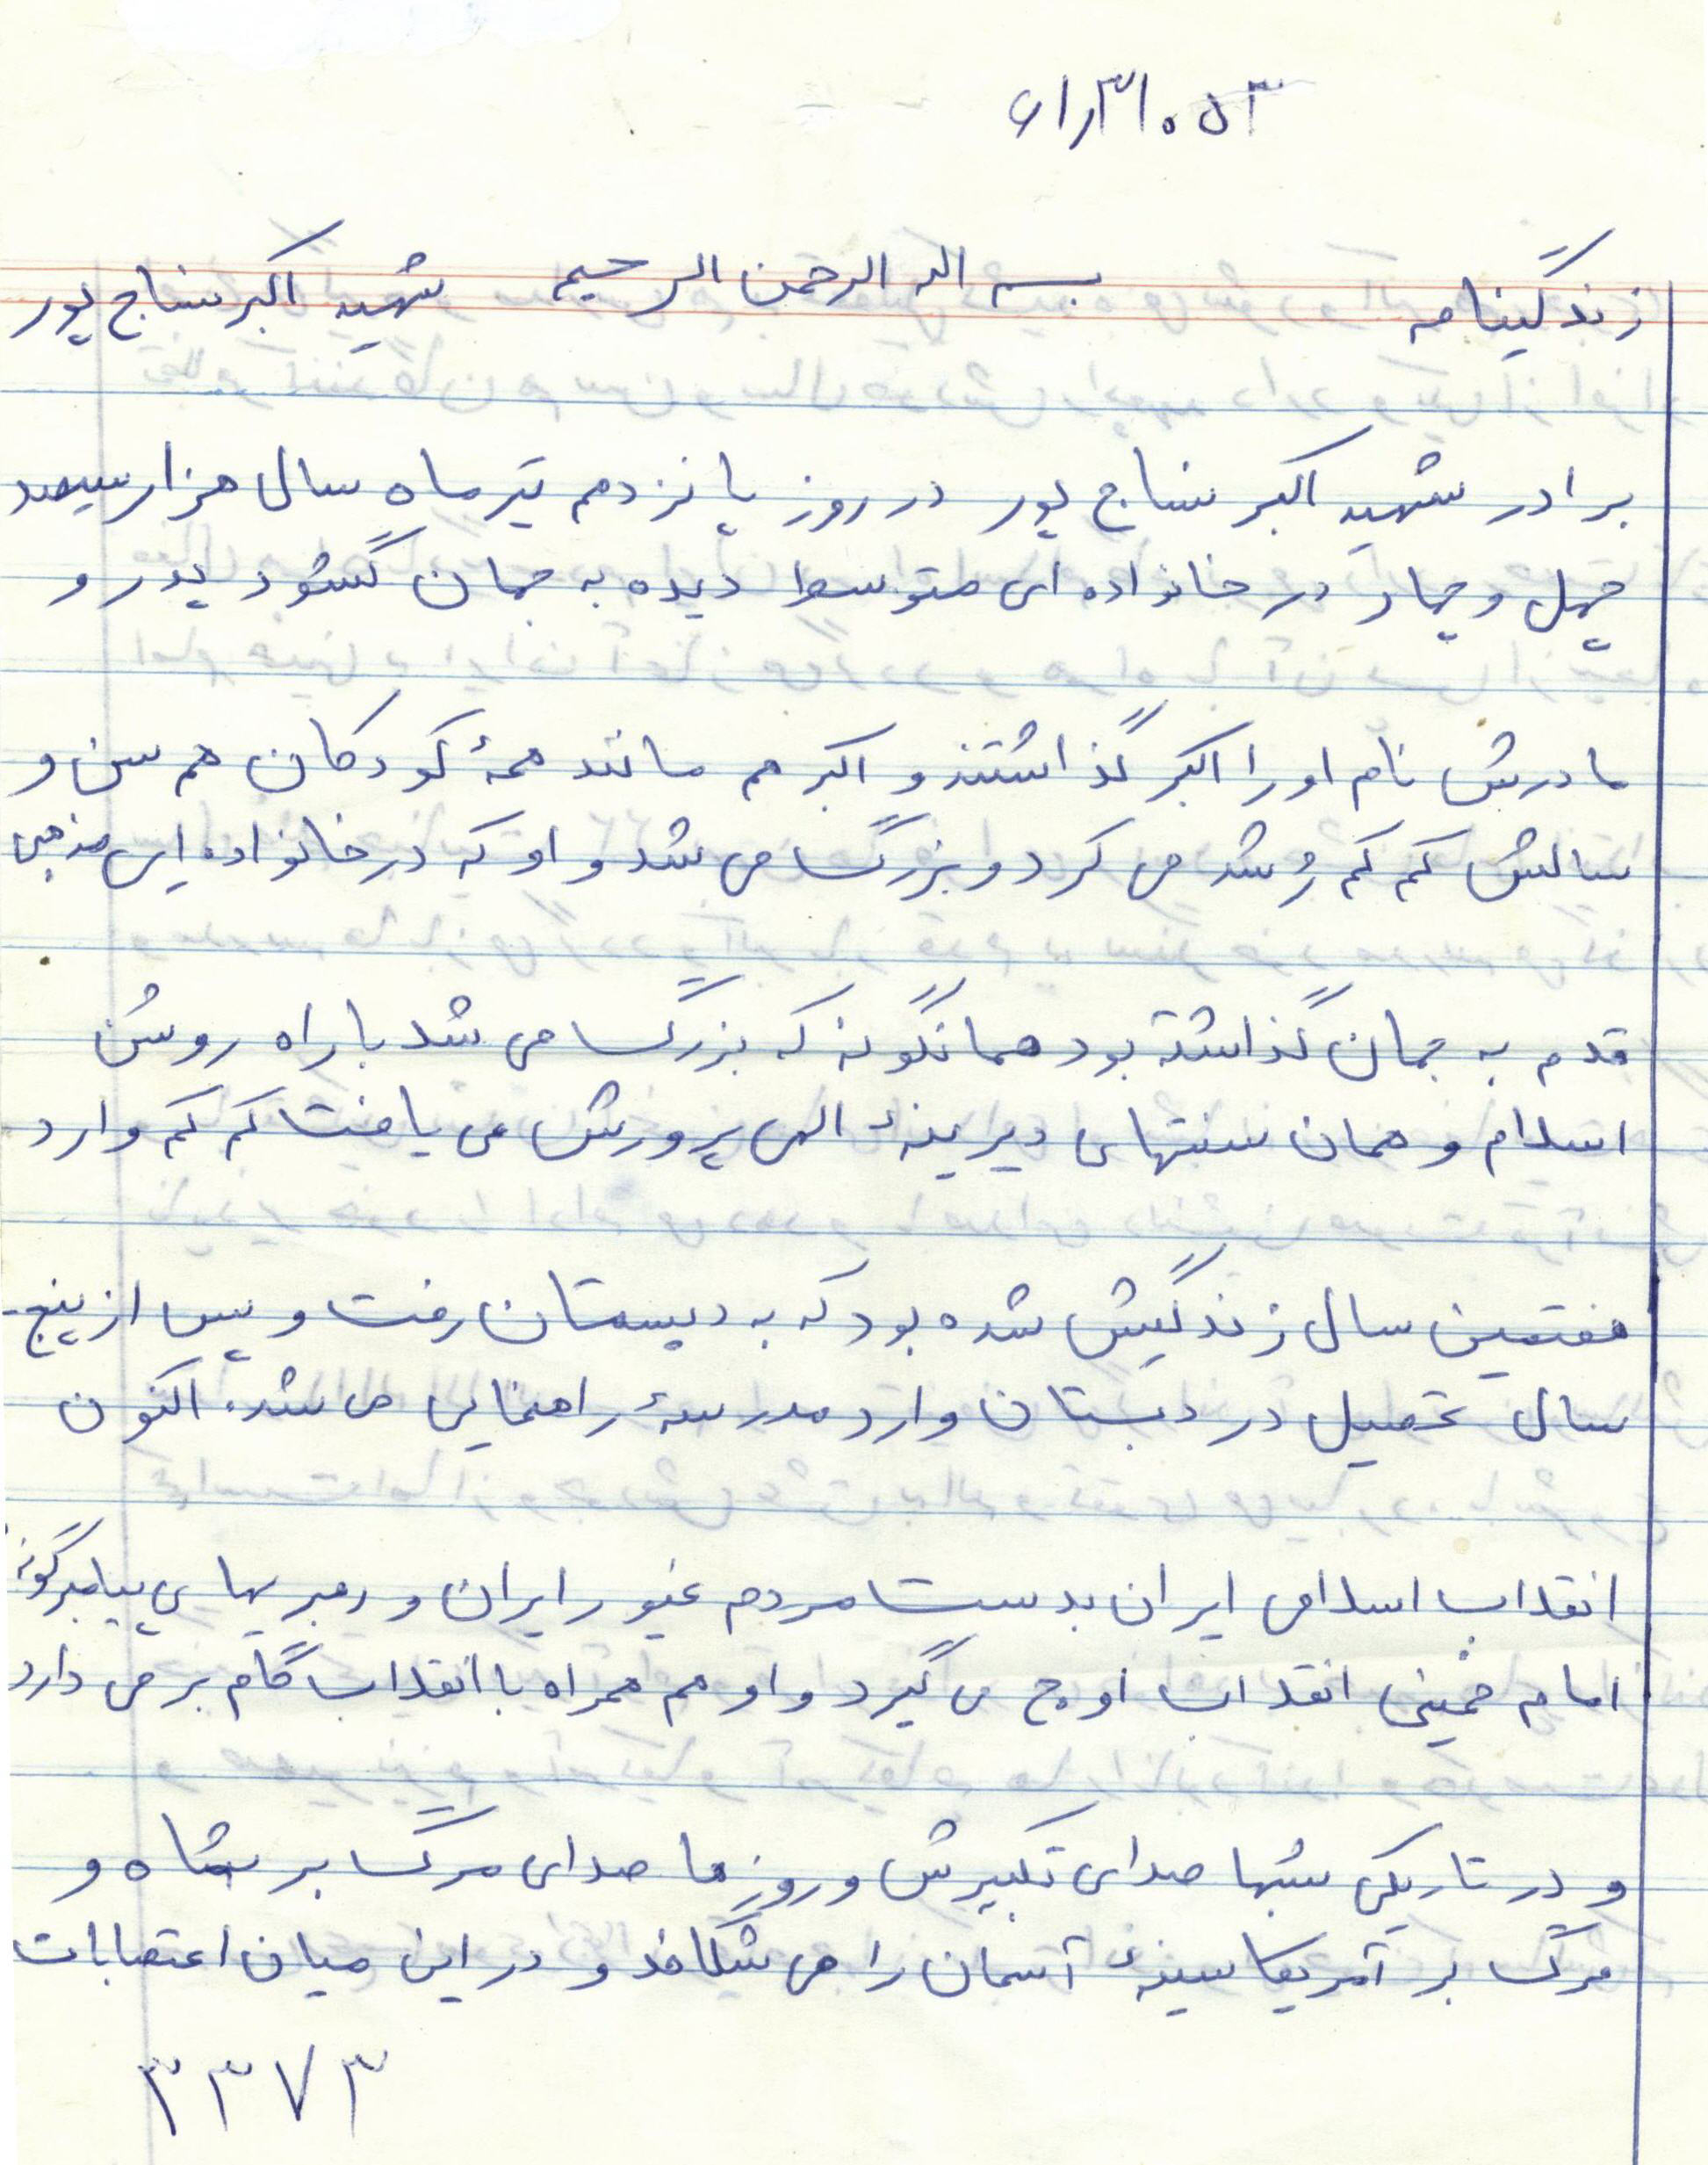 ۶۱٫۳۱۰۵۳
زندگینامه بسم الله الرحمن الرحیم شهید اکبر نساج پور
برادر شهید اکبر نساج پور در روز پانزدهم تیر ماه سال هزار سیصد
چهل و چهار در خانواده ای متوسط دیده به جهان گشود پدر و
مادرش نام او را اکبر گذاشتند و اکبر هم مانند همهٔ کودکان هم سن و
سالش کم کم رشد می کرد و بزرگ می شد و او که در خانواده ای مذهبی
قدم به جهان گذاشته بود همانگونه که بزرگ می شد با راه روشن
اسلام و همان سنتهای دیرینهٔ الهی پرورش می یافت کم کم وارد
هفتمین سال زندگیش شده بود که به دبستان رفت و پس از پنج-
سال تحصیل در دبستان وارد مدرسهٔ راهنمایی می شد. اکنون
انقلاب اسلامی ایران بدست مردم غیور ایران و رهبریهای پیامبرگونهٔ
امام خمینی انقلاب اوج می گیرد و او هم همراه با انقلاب گام بر می دارد
و در تاریکی شبها صدای تکبیرش و روزها صدای مرگ بر شاه و
مرگ بر آمریکا سینهٔ آسمان را می شکافد و در این میان اعتصابات
۳۳۷۳